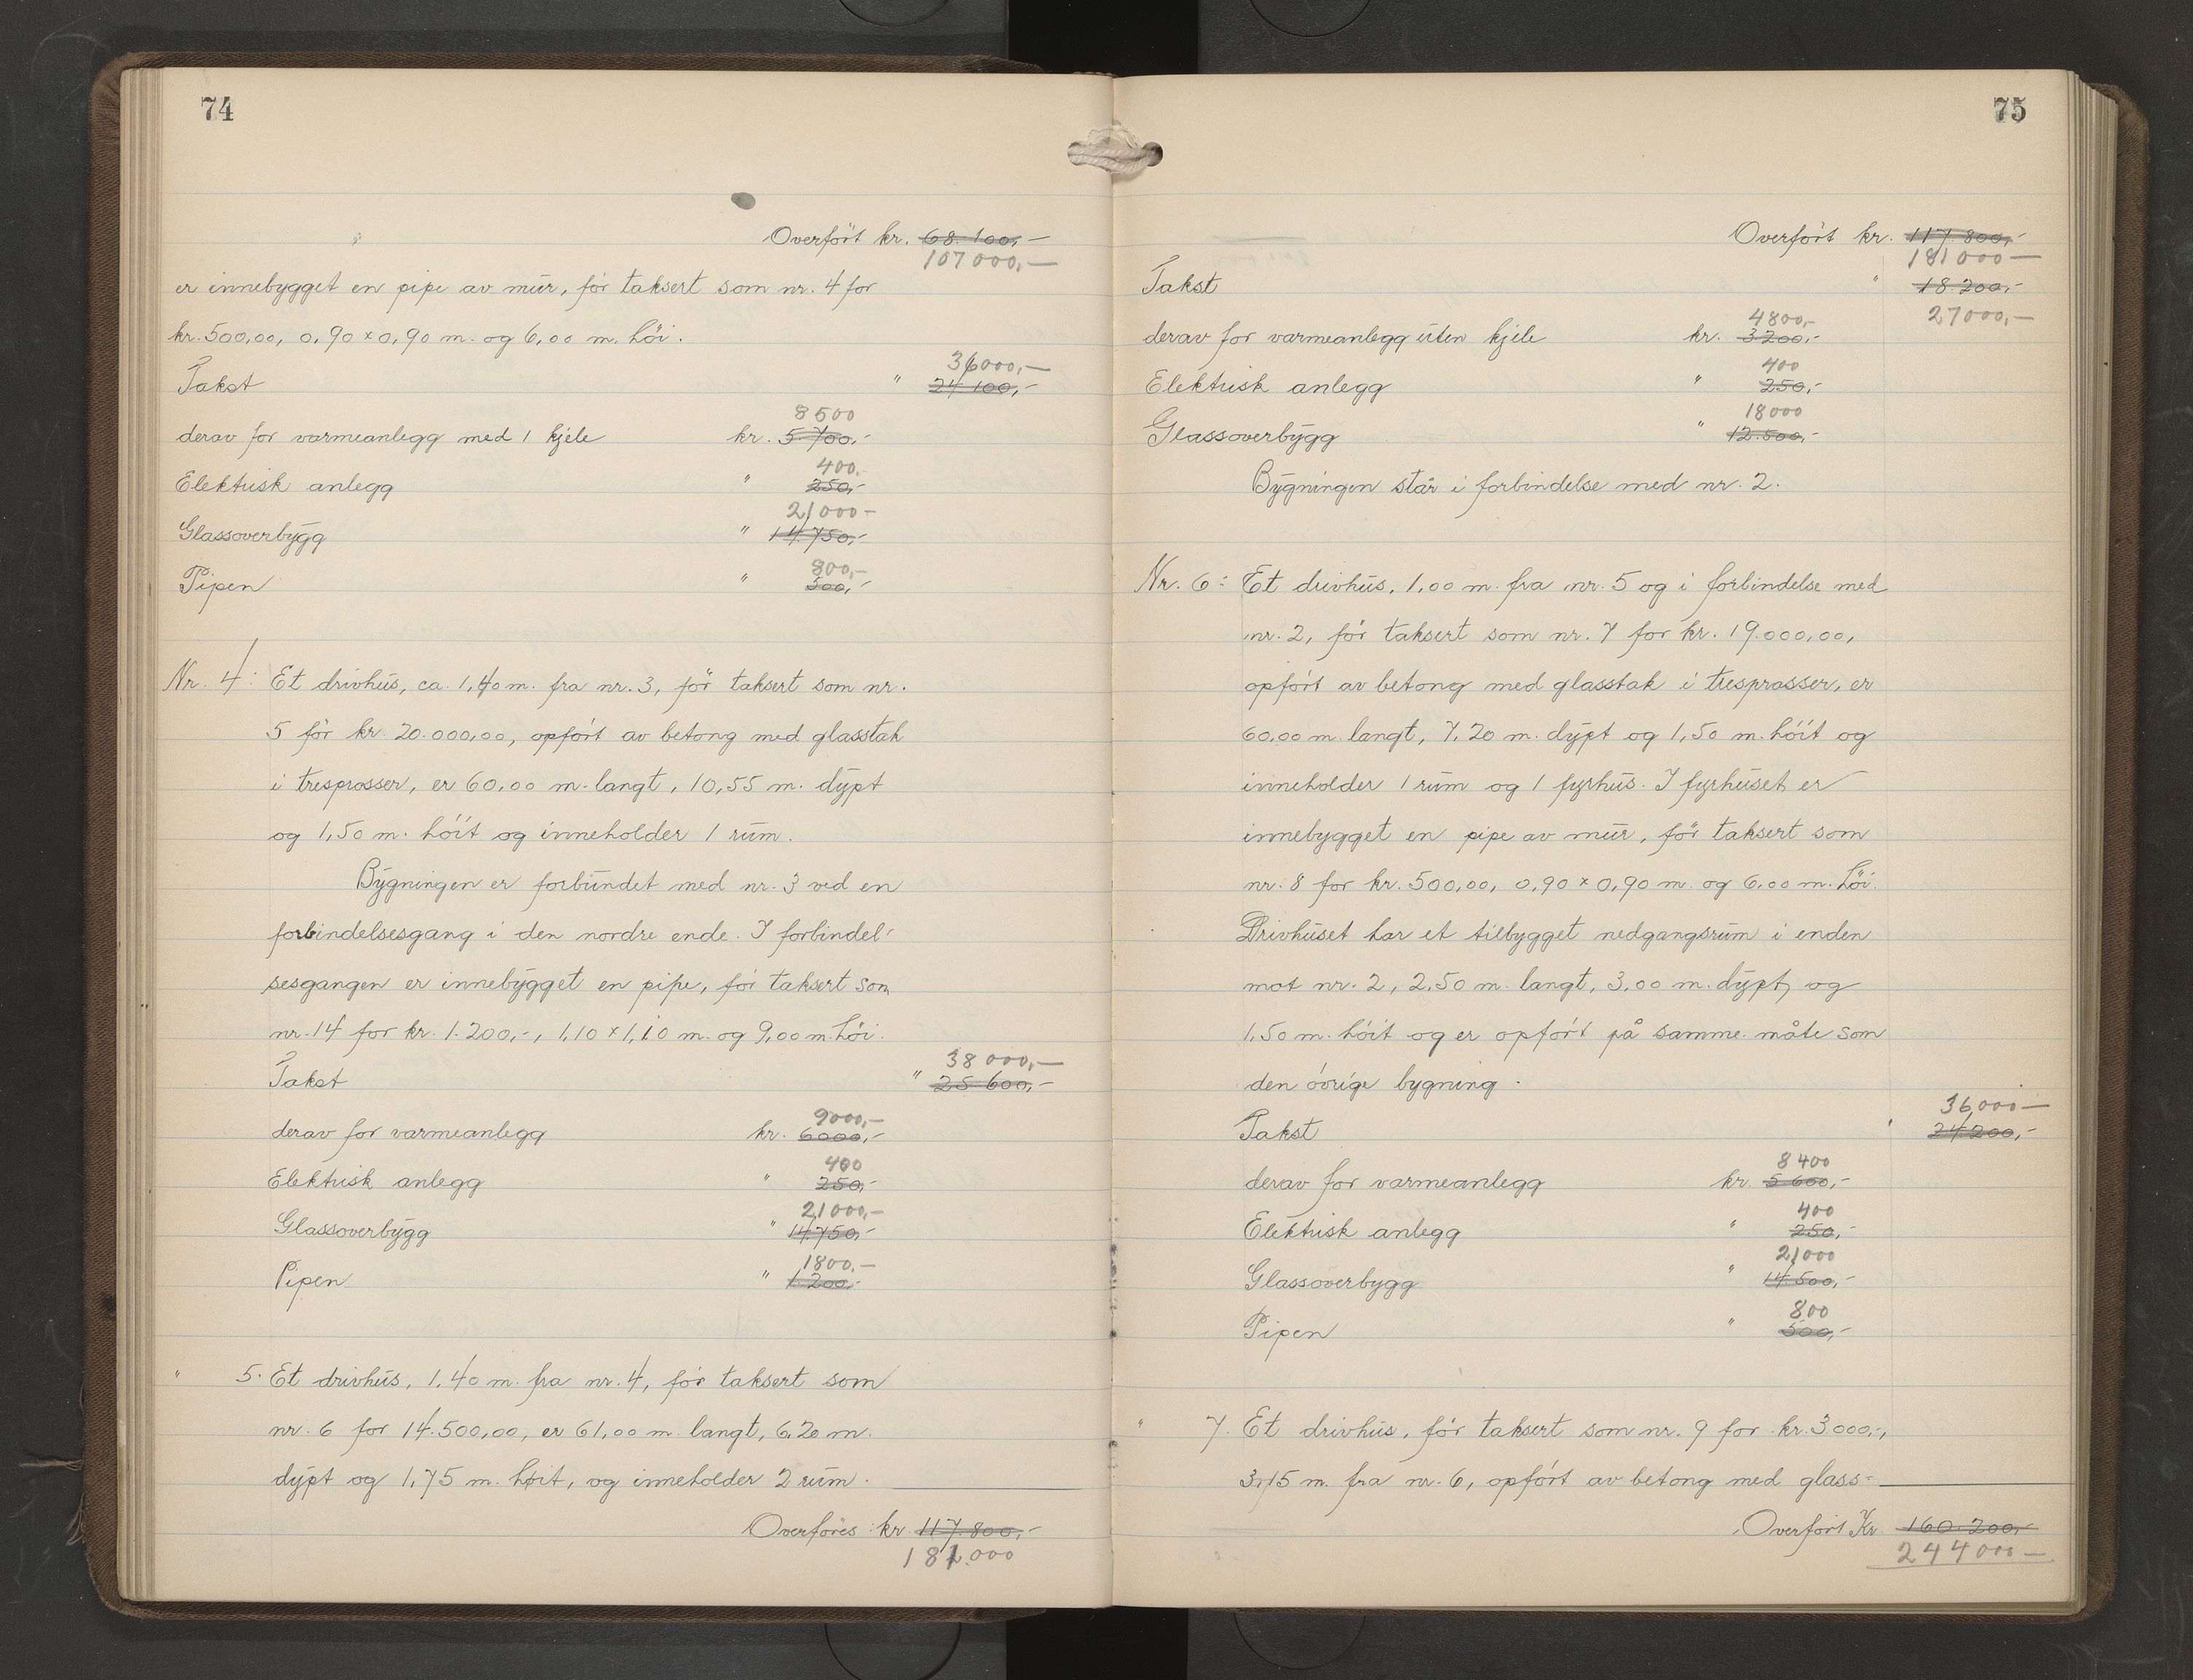 74
Overfört kr. 68.100,-
107000,-
er innebygget en pipe av mur, för taksert som nr. 4 for
kr. 500,00, 0,90 x 0,90 m. og 6,00 m. höi.
36000,-
Takst " 24.100,-
8500
derav for varmeanlegg med 1 kjele kr. 5.700,-
400,-
Elektrisk anlegg " 250,-
21000-
Glassoverbygg " 14.750,-
800,-
Pipen " 500,-
Nr. 4: Et drivhus, ca. 1,40 m. fra nr. 3, för taksert som nr.
5 för kr. 20.000,00, opfört av betong med glasstak
i tresprosser, er 60,00 m. langt, 10,55 m. dypt
og 1,50 m. höit og inneholder 1 rum.
Bygningen er forbundet med nr. 3 ved en
forbindelsesgang i den nordre ende. I forbindel-
sesgangen er innebygget en pipe, för taksert som
nr. 14 for kr. 1.200,-, 1,10 x 1,10 m. og 9,00 m. höi.
38000,-
Takst " 25.600,-
9000,-
derav for varmeanlegg kr. 6000,-
400
Elektrisk anlegg " 250,-
21000,-
Glassoverbygg " 14.750,-
1800,-
Pipen " 1.200,-
" 5. Et drivhus, 1.40 m. fra nr. 4, för taksert som
nr. 6 for 14.500,00, er 61,00 m. langt, 6.20 m.
dypt og 1,75 m. höit, og inneholder 2 rum.
Overföres kr. 117.800,-
181.000
75
Overfört kr. 117.800,-
181000-
Takst " 18.200,-
27000,-
4800,-
derav for varmeanlegg uten kjele kr. 3200,-
400
Elektrisk anlegg " 250,-
18000
Glassoverbygg " 12.500,-
Bygningen står i forbindelse med nr. 2.
Nr. 6: Et drivhus, 1,00 m. fra nr. 5 og i forbindelse med
nr. 2, för taksert som nr. 7 for kr. 19.000,00,
opfört av betong med glasstak i tresprosser, er
60,00 m. langt, 7,20 m. dypt og 1,50 m. höit og
inneholder 1 rum og 1 fyrhus. I fyrhuset er
innebygget en pipe av mur, för taksert som
nr. 8 for kr. 500,00, 0,90 x 0,90 m. og 6,00 m. höi.
Drivhuset har et tilbygget nedgangsrum i enden
mot nr. 2, 2,50 m. langt, 3,00 m. dypt, og
1,50 m. höit og er opfört på samme måte som
den övrige bygning.
36000-
Takst " 24.200,-
8400
derav for varmeanlegg kr. 5.600,-
400
Elektrisk anlegg " 250,-
21000
Glassoverbygg " 14.500,-
800
Pipen " 500,-
" 7. Et drivhus, för taksert som nr. 9 for kr. 3000,-,
3,15 m. fra nr. 6, opfört av betong med glass-
Overfört Kr. 160.200,-
244000-